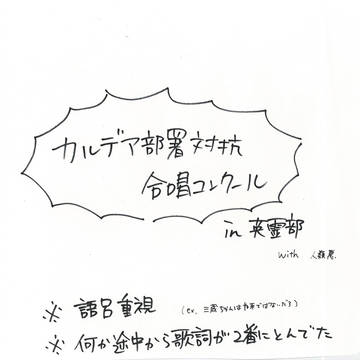 カルデア部署対抗
合唱コンクール
in 英霊部
with 人類悪
※ 語呂重視 (ex. 三歳ちゃんは
※ 何か途中から歌詞が2番にとんでた